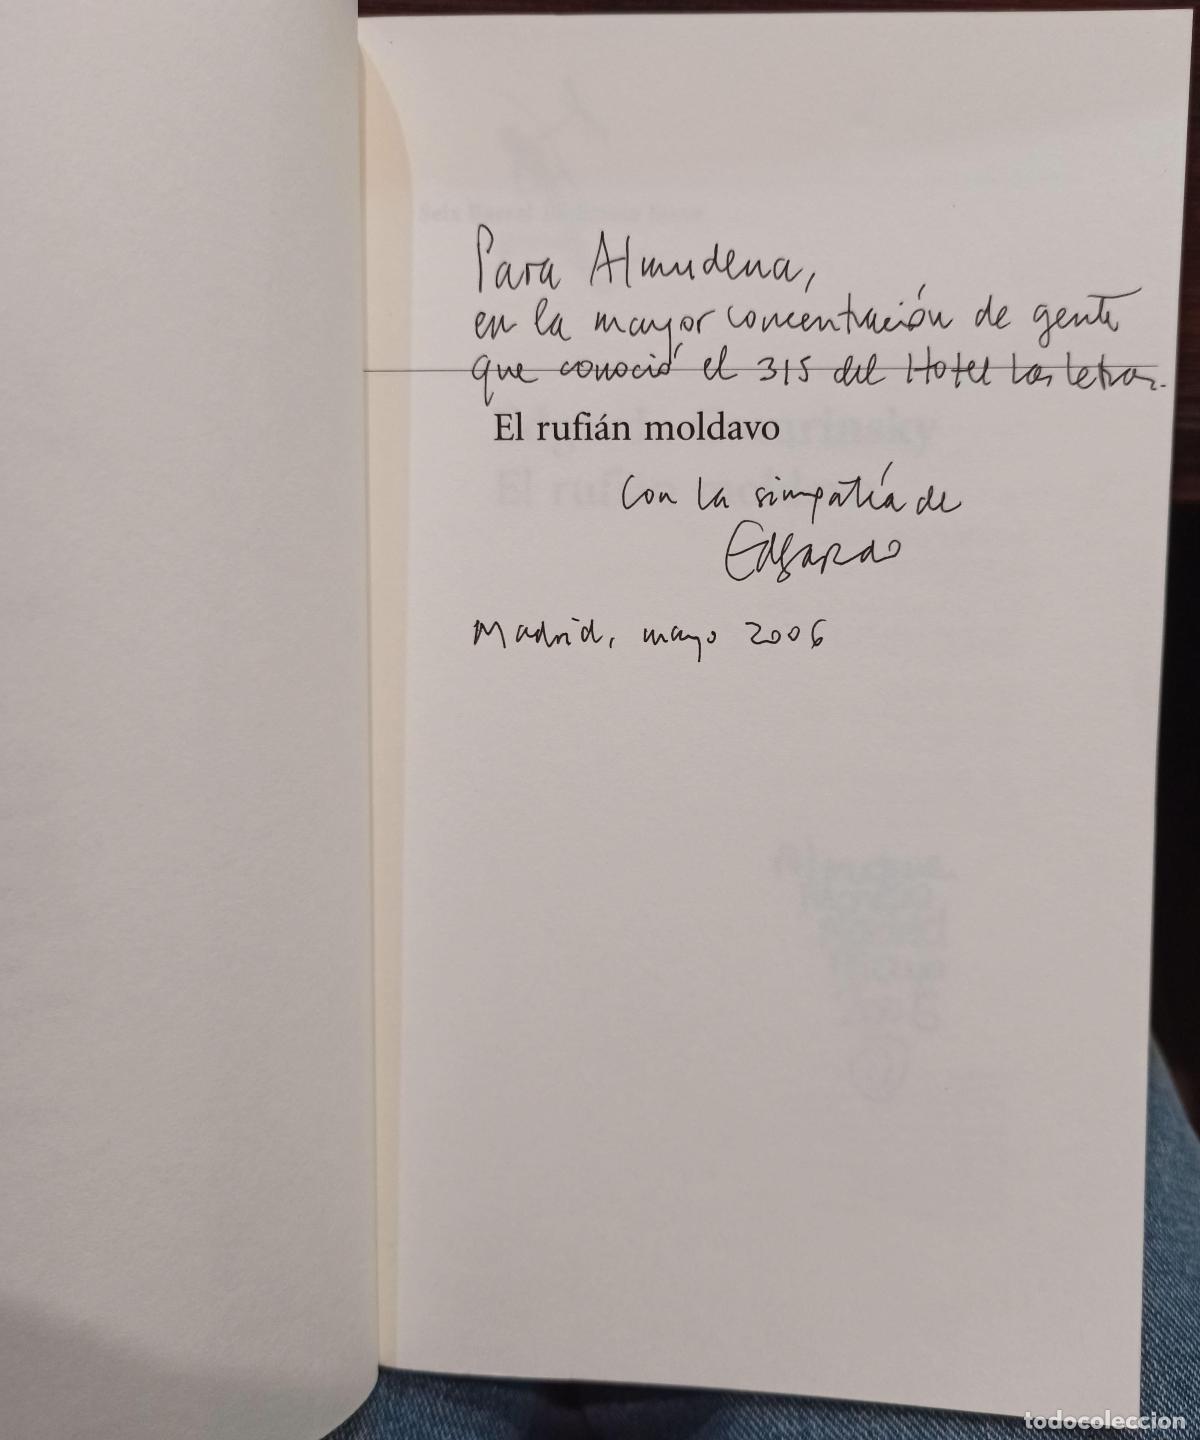 Seix Barral Biblioteca Breve
Para Almudena,
en la mayor concentración de gente
que conoció el 315 del Hotel Las Letras.
El rufián moldavo
Con la simpatía de
Edgardo
Madrid, mayo 2006
todocoleccion